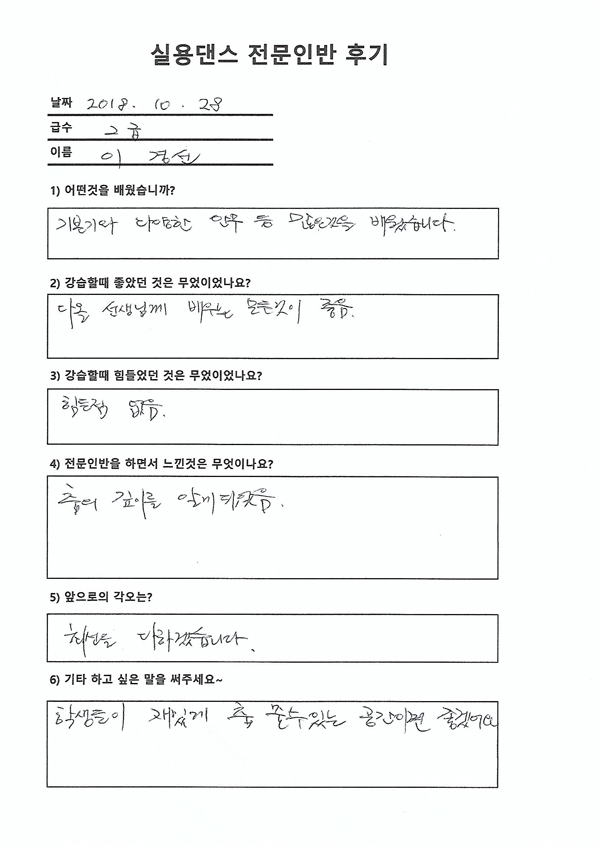 실용댄스 전문인반 후기
날짜 2018. 10. 28
급수 2급
이름 이 경선
1) 어떤것을 배웠습니까?
기본기와 다양한 안무 등 많은것을 배웠습니다.
2) 강습할때 좋았던 것은 무었이었나요?
다올 선생님께 배우는 모든것이 좋음.
3) 강습할때 힘들었던 것은 무었이었나요?
힘든적 없음.
4) 전문인반을 하면서 느낀것은 무엇이나요?
춤의 깊이를 알게 되었음.
5) 앞으로의 각오는?
최선을 다하겠습니다.
6) 기타 하고 싶은 말을 써주세요~
학생들이 재밌게 춤 출수있는 공간이면 좋겠어요